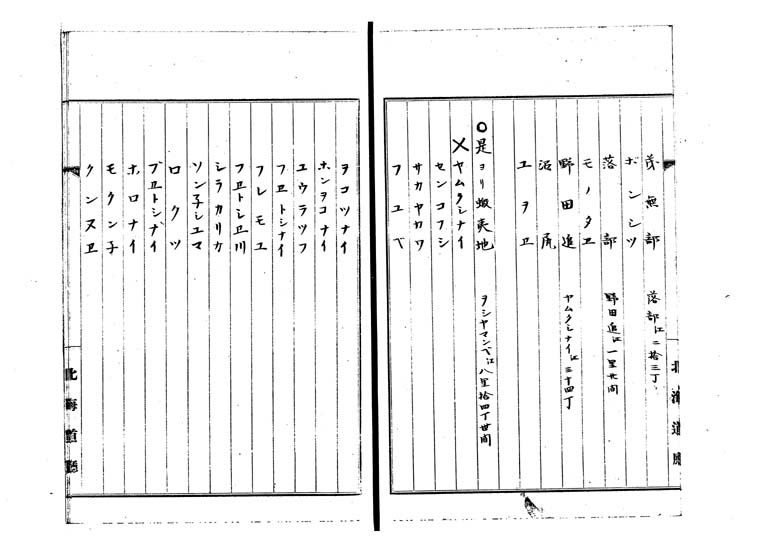 茂無部　落部江二拾三丁、
ボンシツ
落部　野田追江一里廾間
モノタヱ
野田追　ヤムクシナイ江三十四丁
沼尻
ユヲヱ
○是ヨリ蝦夷地　ヲシヤマンベ江八里拾四丁廿間
×ヤムクシナイ
センコフシ
サカヤカワ
フユベ
北海道廳
ヲコツナイ
ホンヲコナイ
ユウラツフ
フヱトシナイ
フレモユ
フヱトシヱ川
シラカリカ
ソン子シユマ
ロクツ
ブヱトシナイ
ホロナイ
モクン子
クンヌヱ
北海道廳